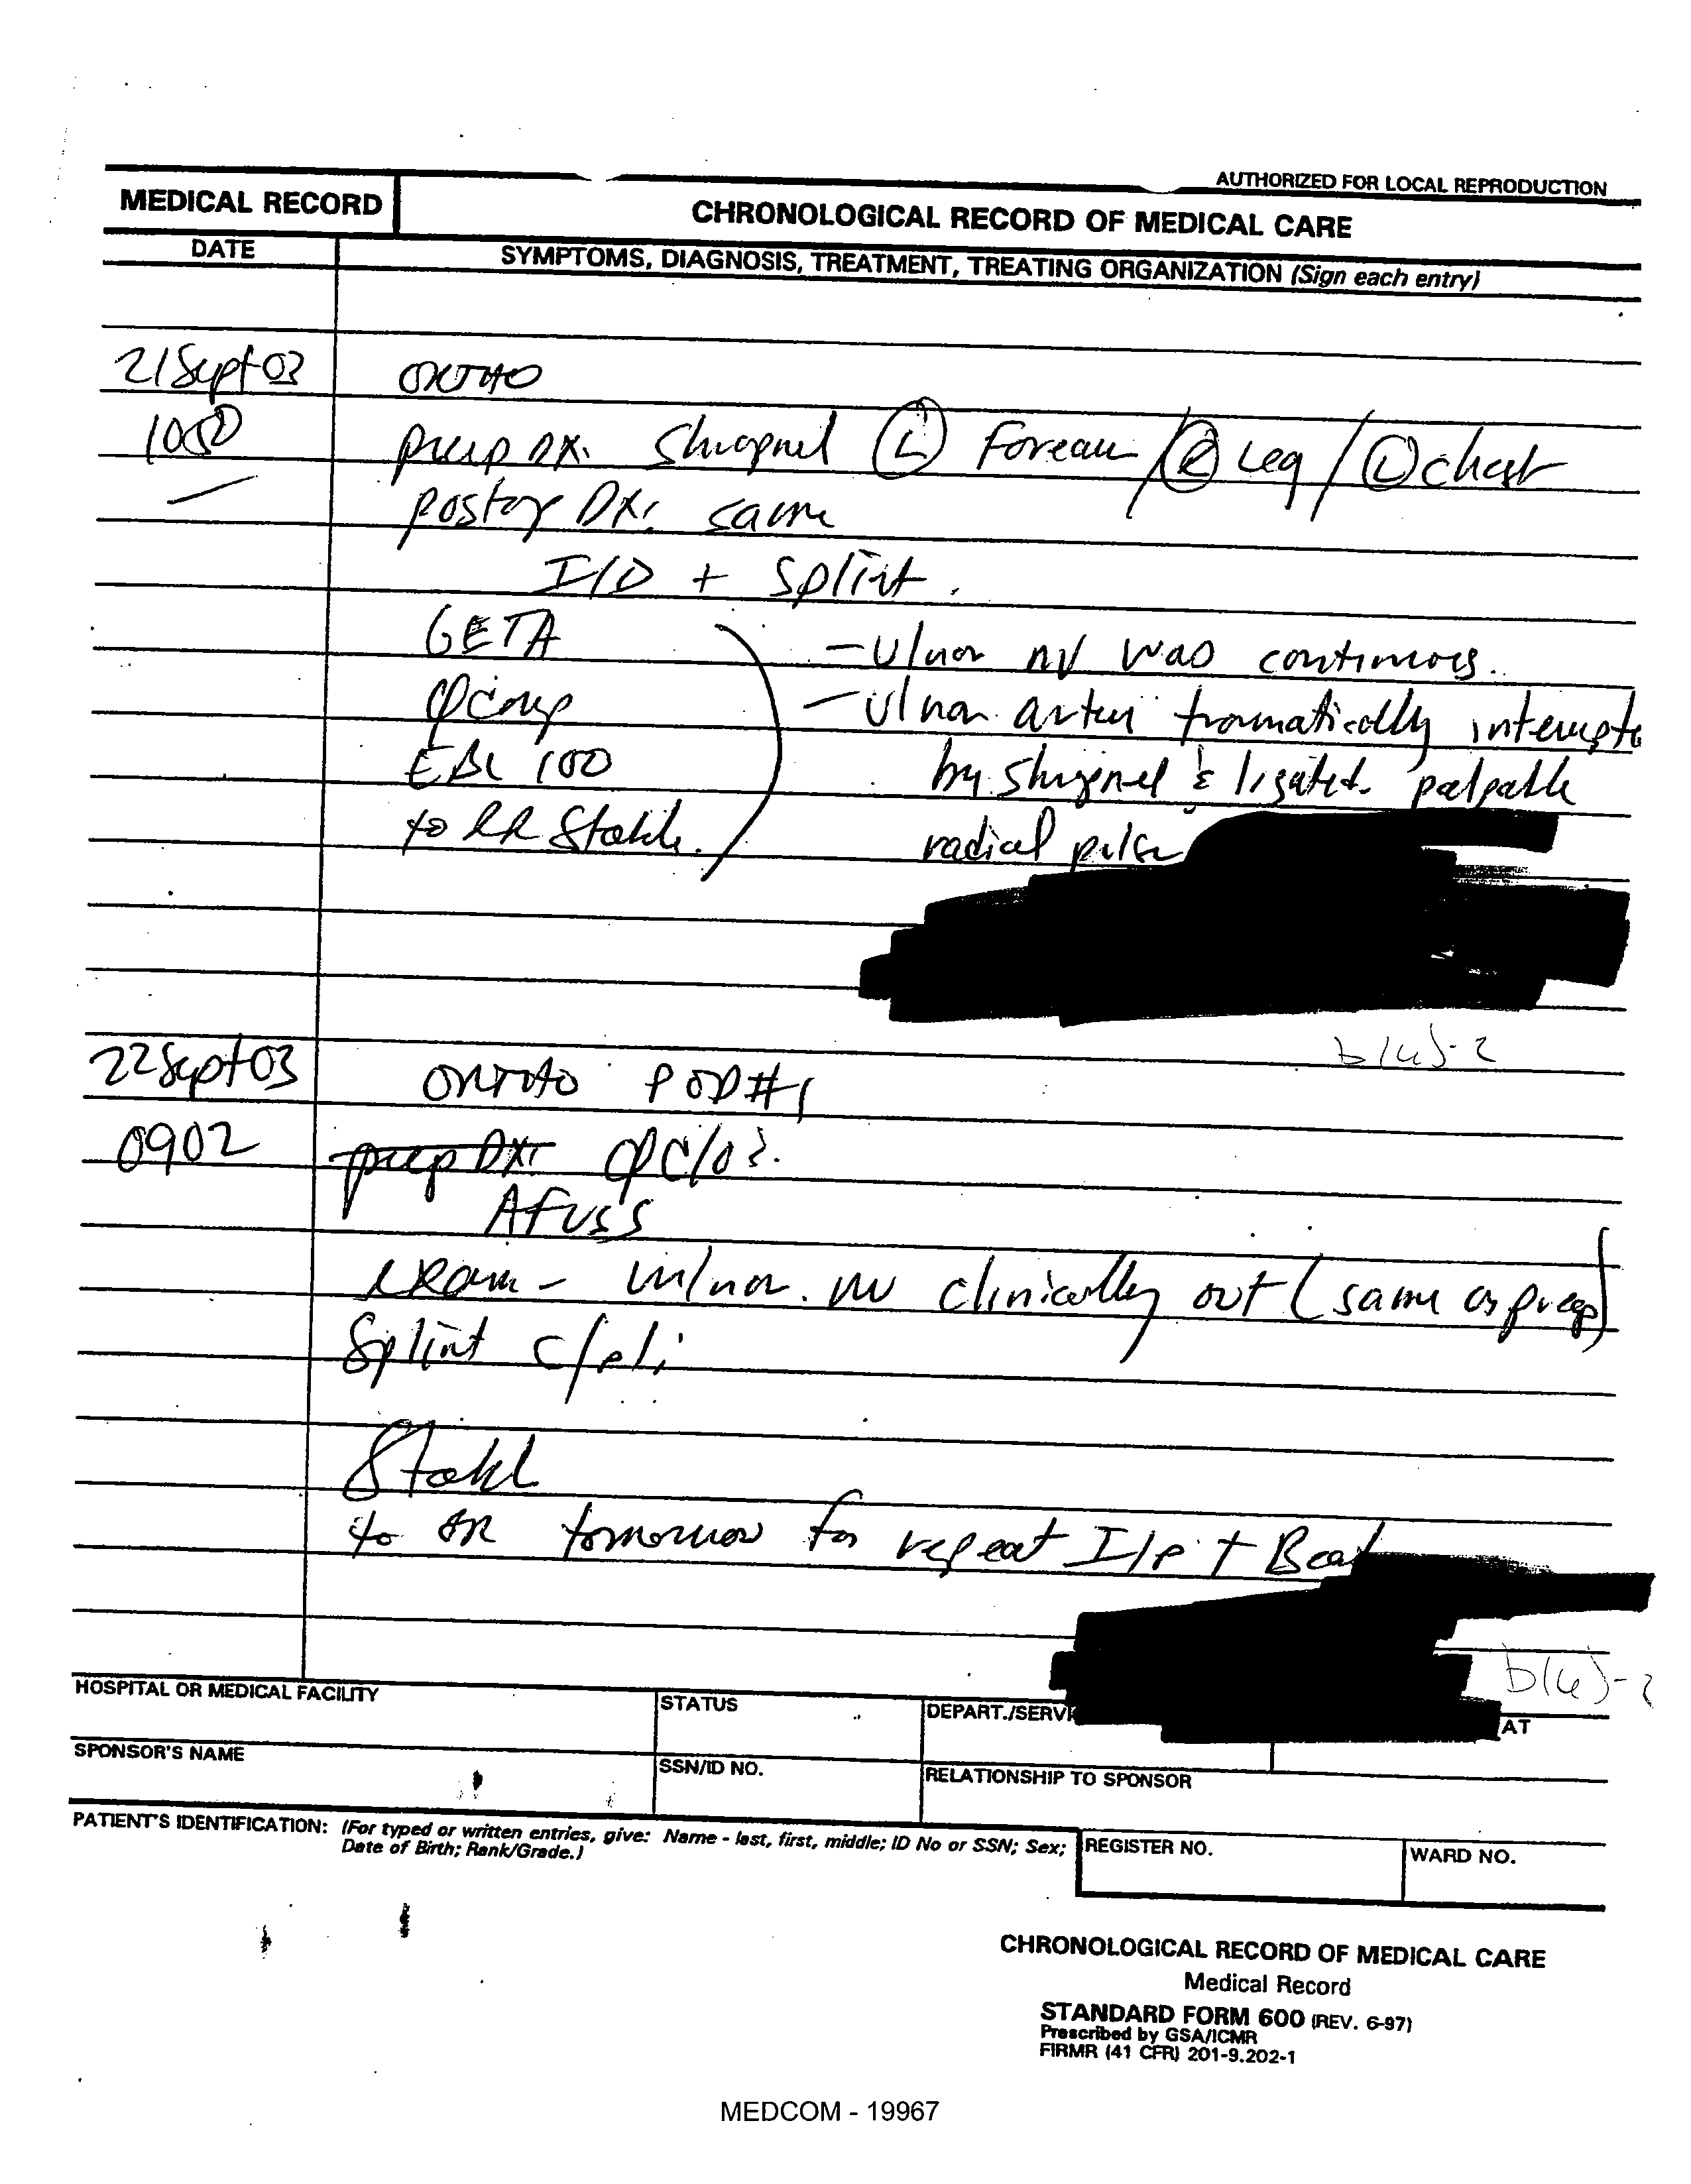 AUTHORIZED FOR LOCAL REPRODUCTION
MEDICAL RECORD
CHRONOLOGICAL RECORD OF MEDICAL CARE
DATE
SYMPTOMS, DIAGNOSIS, TREATMENT, TREATING ORGANIZATION (Sign each entry)
21 Sept 03 ORTHO
1050 preop DX: Shrapnel (L) Forearm / (R) Leg / (L) chest
— postop DX: same
I/D + Splint.
GETA – Ulnar nv was continuous.
Ø comp – Ulnar artery traumatically interrupte
EBL 100 by shrapnel & ligated. palpable
to RR Stable. radial pulse
b(6)-2
22 Sept 03 ORTHO POD#1
0902 preop DX: Ø C/O's.
AFVSS
exam – ulnar nv clinically out (same as preop)
Splint c/d/i
Stable
to OR tomorrow for repeat I/D +
b(6)-2
HOSPITAL OR MEDICAL FACILITY
STATUS
DEPART./SERVI
AT
SPONSOR'S NAME
SSN/ID NO.
RELATIONSHIP TO SPONSOR
PATIENT'S IDENTIFICATION: (For typed or written entries, give: Name - last, first, middle; ID No or SSN; Sex;
Date of Birth; Rank/Grade.)
REGISTER NO.
WARD NO.
CHRONOLOGICAL RECORD OF MEDICAL CARE
Medical Record
STANDARD FORM 600 (REV. 6-97)
Prescribed by GSA/ICMR
FIRMR (41 CFR) 201-9.202-1
MEDCOM - 19967